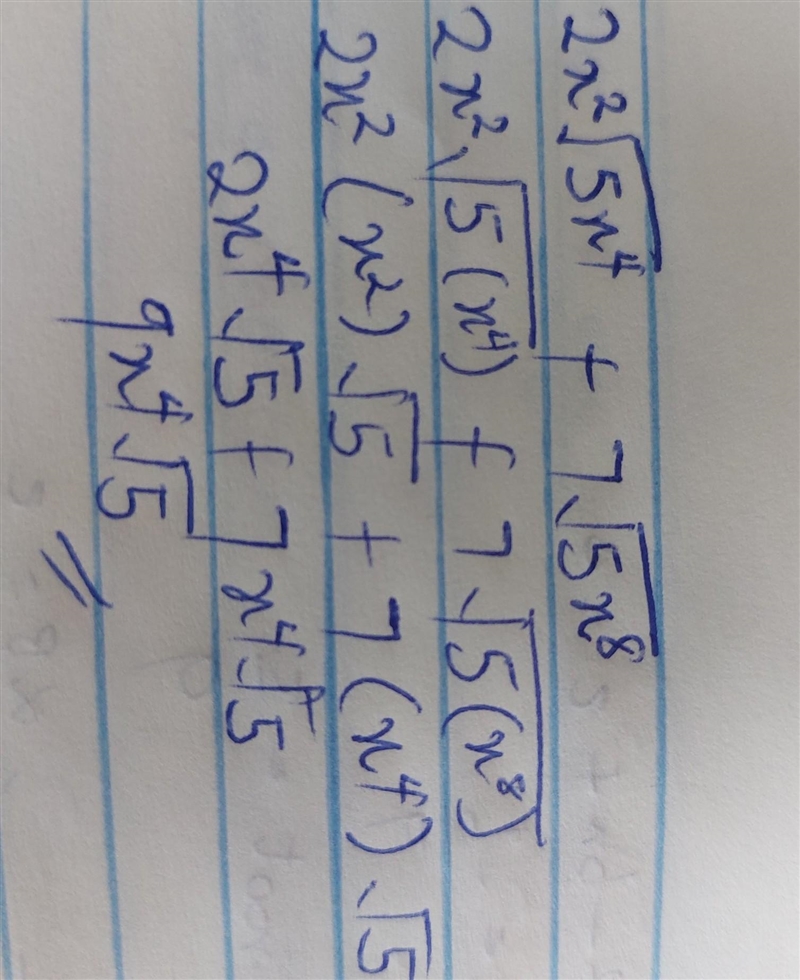 2x²√5x⁴ + 7√5x⁸
2x²√5(x⁴) + 7√5(x⁸)
2x² (x²) √5 + 7 (x⁴) √5
2x⁴√5 + 7x⁴√5
9x⁴√5